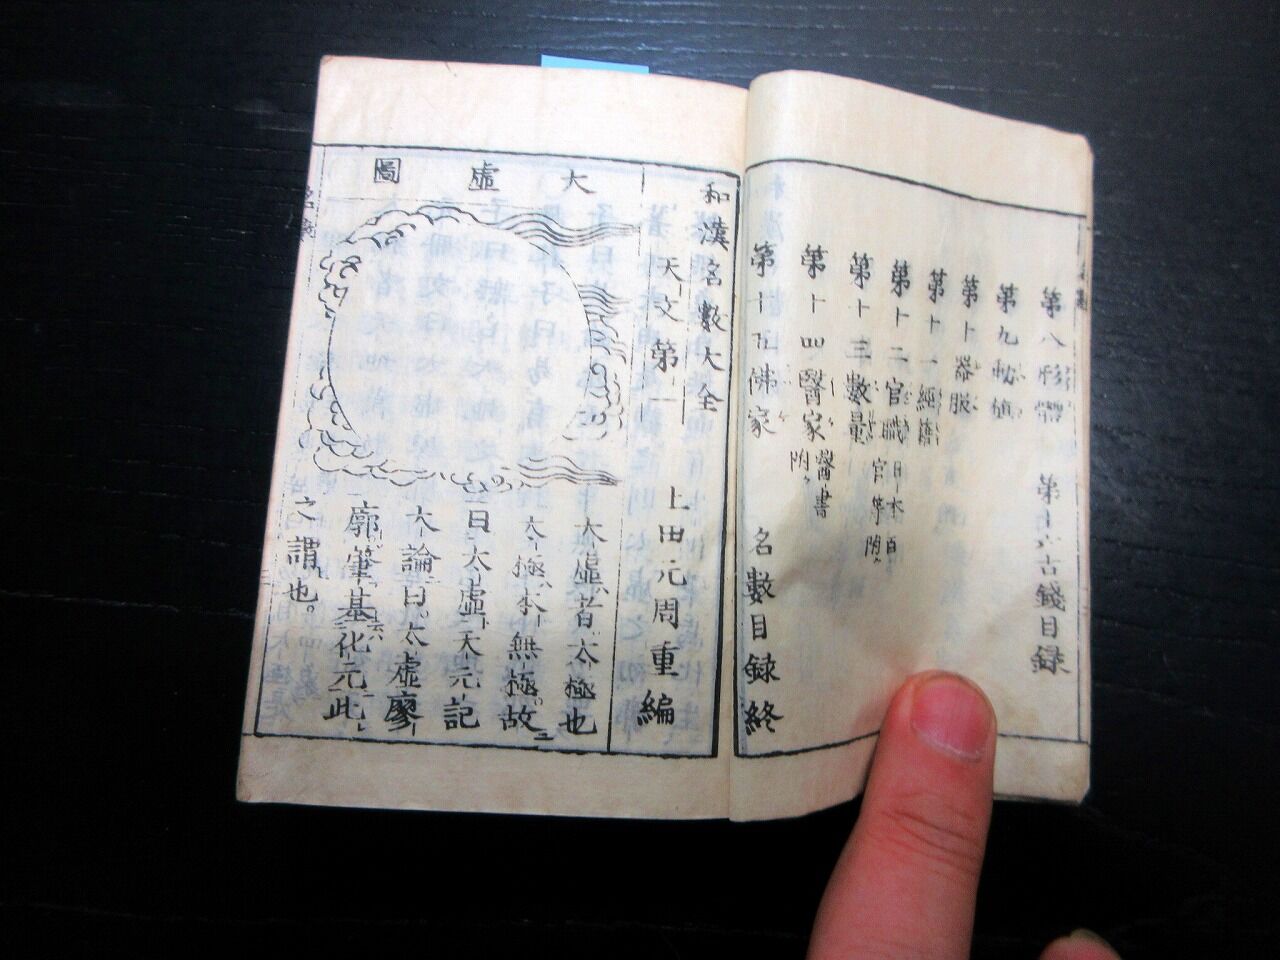 第八形體
第九動植
第十器服
第十一經籍
第十二官職日本百官等附
第十三數量
第十四醫家醫書附
第十五佛家
第十六古錢目録
名數目録終
和漢名數大全
天文第一
上田元周重編
大虛圖
太虛者太極也
太極本無極故
曰太虛天元記
大論曰太虛廖
廓肇基化元此
之謂也。